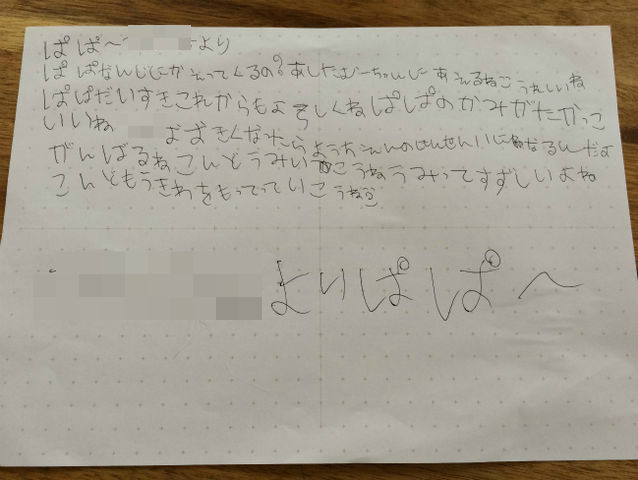 ぱぱ〜 より
ぱぱなんじにかえってくるの?あしたばーちゃんにあえるねこうれしいね
ぱぱだいすきこれからもよろしくねぱぱのかみがたかっこ
いいね おおきくなったらようちえんのせんせいになるんだよ
がんばるねこんどうみいこうねうみってすずしいよね
こんどもうきわをもってっていこうね
よりぱぱ〜